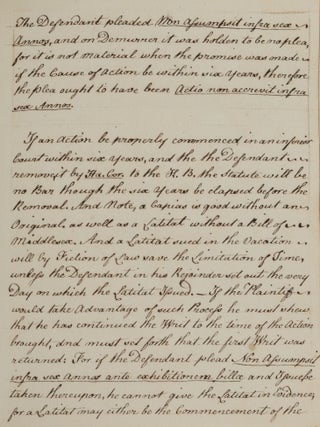 The Defendant pleaded Non Assumpsit infra sex
Annos, and on Demurrer it was holden to be no plea,
for it is not material when the promise was made
if the Cause of Action be within six Years, therefore
the plea ought to have been Actio non accrevit infra
sex Annos.
If an Action be properly commenced in an inferior
Court within six Years, and the the Defendant
remove it by Ha. Cor. to the K. B. the Statute will be
no Bar though the six Years be elapsed before the
Removal. And Note, a Capias is good without an
Original, as well as a Latitat without a Bill of
Middlesex. And a Latitat sued in the Vacation
will by Fiction of Law save the Limitation of Time,
unless the Defendant in his Rejoinder set out the very
Day on which the Latitat Issued. — If the Plaintiff
would take Advantage of such Process he must shew
that he has continued the Writ to the time of the Action
brought, and must set forth that the first Writ was
returned; For if the Defendant plead Non Assumpsit
infra sex Annos ante exhibitionem billæ and Issue be
taken thereupon, he cannot give the Latitat in Evidence,
for a Latitat may either be the Commencement of the